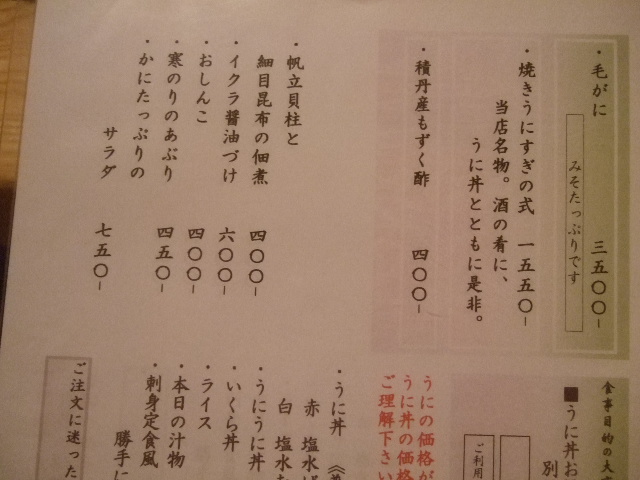 ・毛がに 三五〇〇-
みそたっぷりです
・焼きうにすぎの式 一五五〇-
当店名物。酒の肴に、
うに丼とともに是非。
・積丹産もずく酢 四〇〇-
・帆立貝柱と
細目昆布の佃煮 四〇〇-
・イクラ醤油づけ 六〇〇-
・おしんこ 四〇〇-
・寒のりのあぶり 四五〇-
・かにたっぷりの
サラダ 七五〇-
食事目的の大
■うに丼お
別
ご利用
うにの価格が
うに丼の価格
ご理解下さい
・うに丼
赤 塩水
白 塩水
・うにうに丼
・いくら丼
・ライス
・本日の汁物
・刺身定食風
勝手に
ご注文に迷った